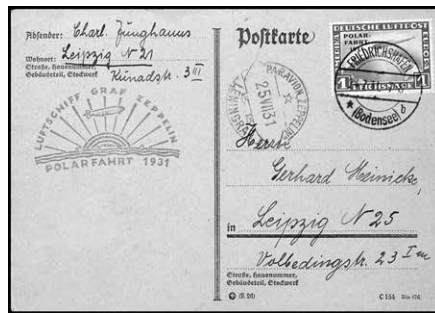 Absender: Charl. Junghanns
Wohnort: Leipzig N 21
Straße, Hausnummer,
Gebäudeteil, Stockwerk
Kunadstr. 3 III
LUFTSCHIFF GRAF ZEPPELIN
POLARFAHRT 1931
Postkarte
DEUTSCHE LUFTPOST
EUROPA
POLAR-
FAHRT
1
REICHSMARK
1
FRIEDRICHSHAFEN
(Bodensee) b
PAR AVION ZEPPELIN
25 VII 31
Herrn
Gerhard Meinicke
in Leipzig N 25
Volbedingstr. 23 I
Straße, Hausnummer,
Gebäudeteil, Stockwerk
C 154